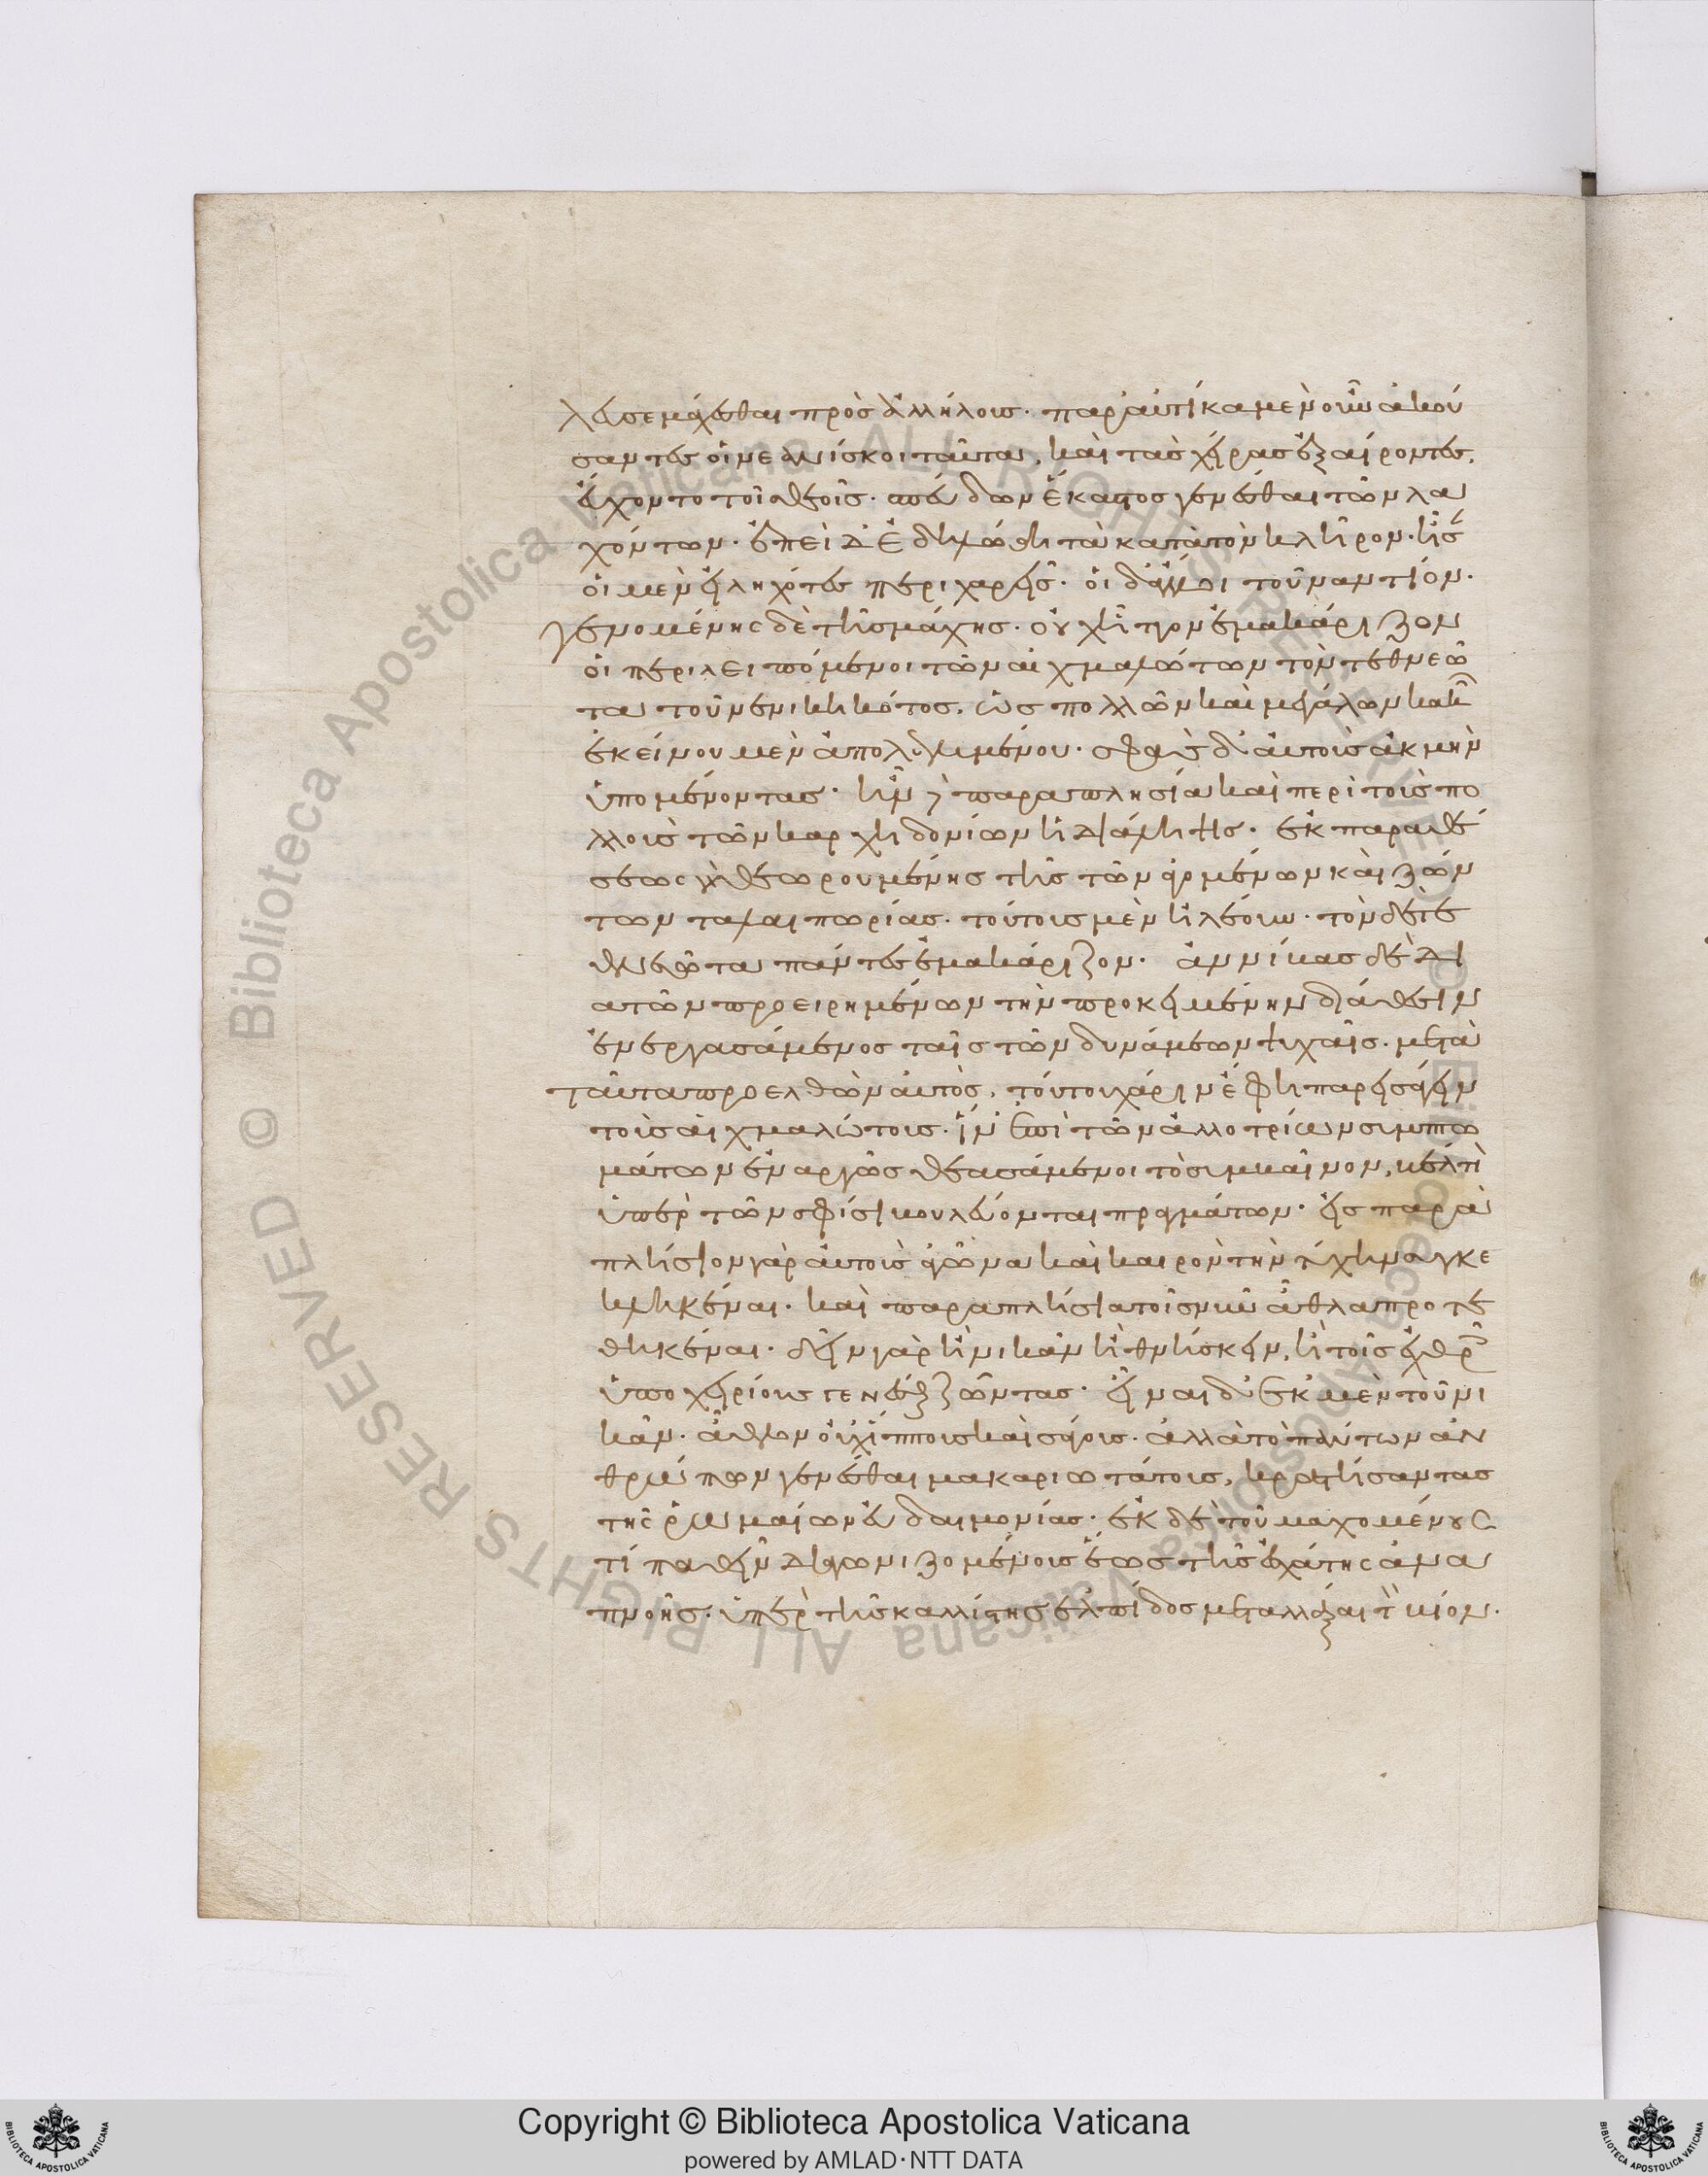 λευσε μάχεσθαι πρὸς ἀλλήλους. παραυτίκα μὲν οὖν ἀκού
σαντες οἱ νεανίσκοι ταῦτα, καὶ τὰς χεῖρας ἐξαίροντες,
εὔχοντο τοῖς θεοῖς. σπεύδων ἕκαστος γενέσθαι τῶν λα
χόντων. ἐπεὶ δὲ ἐδηλώθη τὰ κατὰ τὸν κλῆρον. ἦσαν
οἱ μὲν εἰληχότες περιχαρεῖς. οἱ δ' ἄλλοι τοὐναντίον.
γενομένης δὲ τῆς μάχης. οὐχ ἧττον ἐμακάριζον
οἱ περιλειπόμενοι τῶν αἰχμαλώτων τὸν τεθνεῶ
τα τοῦ νενικηκότος. ὡς πολλῶν καὶ μεγάλων κακῶν
ἐκείνου μὲν ἀπολελυμένου. σφᾶς δ' αὐτοὺς ἀκμὴν
ὑπομένοντας. ἦν δὲ παραπλησία καὶ περὶ τοὺς πο
λλοὺς τῶν καρχηδονίων ἡ διάληψις. ἐκ παραθέ
σεως γὰρ θεωρουμένης τῆς τῶν ἀγομένων καὶ ζών
των ταλαιπωρίας. τούτους μὲν ἠλέουν. τὸν δὲ τε
θνεῶτα πάντες ἐμακάριζον. ἀννίβας δὲ δι
ὰ τῶν προειρημένων τὴν προκειμένην διάθεσιν
ἐνεργασάμενος ταῖς τῶν δυνάμεων ψυχαῖς. μετὰ
ταῦτα προελθὼν αὐτὸς, τούτου χάριν ἔφη παρεισάγειν
τοὺς αἰχμαλώτους. ἵν' ἐπὶ τῶν ἀλλοτρίων συμπτω
μάτων ἐναργῶς θεασάμενοι τὸ συμβαῖνον, βέλτι
ὑπὲρ τῶν σφίσι βουλεύονται πραγμάτων. εἰς παρα
πλήσιον γὰρ αὐτοὺς ἀγῶνα καὶ καιρὸν τὴν τύχην συγκε
κλεικέναι. καὶ παραπλήσια τοῖς νῦν ἆθλα προτε
θεικέναι. δεῖν γὰρ ἢ νικᾶν ἢ θνήσκειν, ἢ τοῖς ἐχθροῖς
ὑποχειρίους γενέσθαι ζῶντας. εἶναι δ' ἐκ μὲν τοῦ νι
κᾶν. ἆθλον οὐχ ἵππους καὶ σάγους. ἀλλὰ τὸ πάντων ἀν
θρώπων γενέσθαι μακαριωτάτους, κρατήσαντας
τῆς ῥωμαίων εὐδαιμονίας. ἐκ δὲ τοῦ μαχομένους
τί παθεῖν διαγωνιζομένους ἕως τῆς ἐσχάτης ἀνα
πνοῆς. ὑπὲρ τῆς καλλίστης ἐλπίδος μεταλλάξαι τὸν βίον.
Copyright © Biblioteca Apostolica Vaticana
powered by AMLAD·NTT DATA